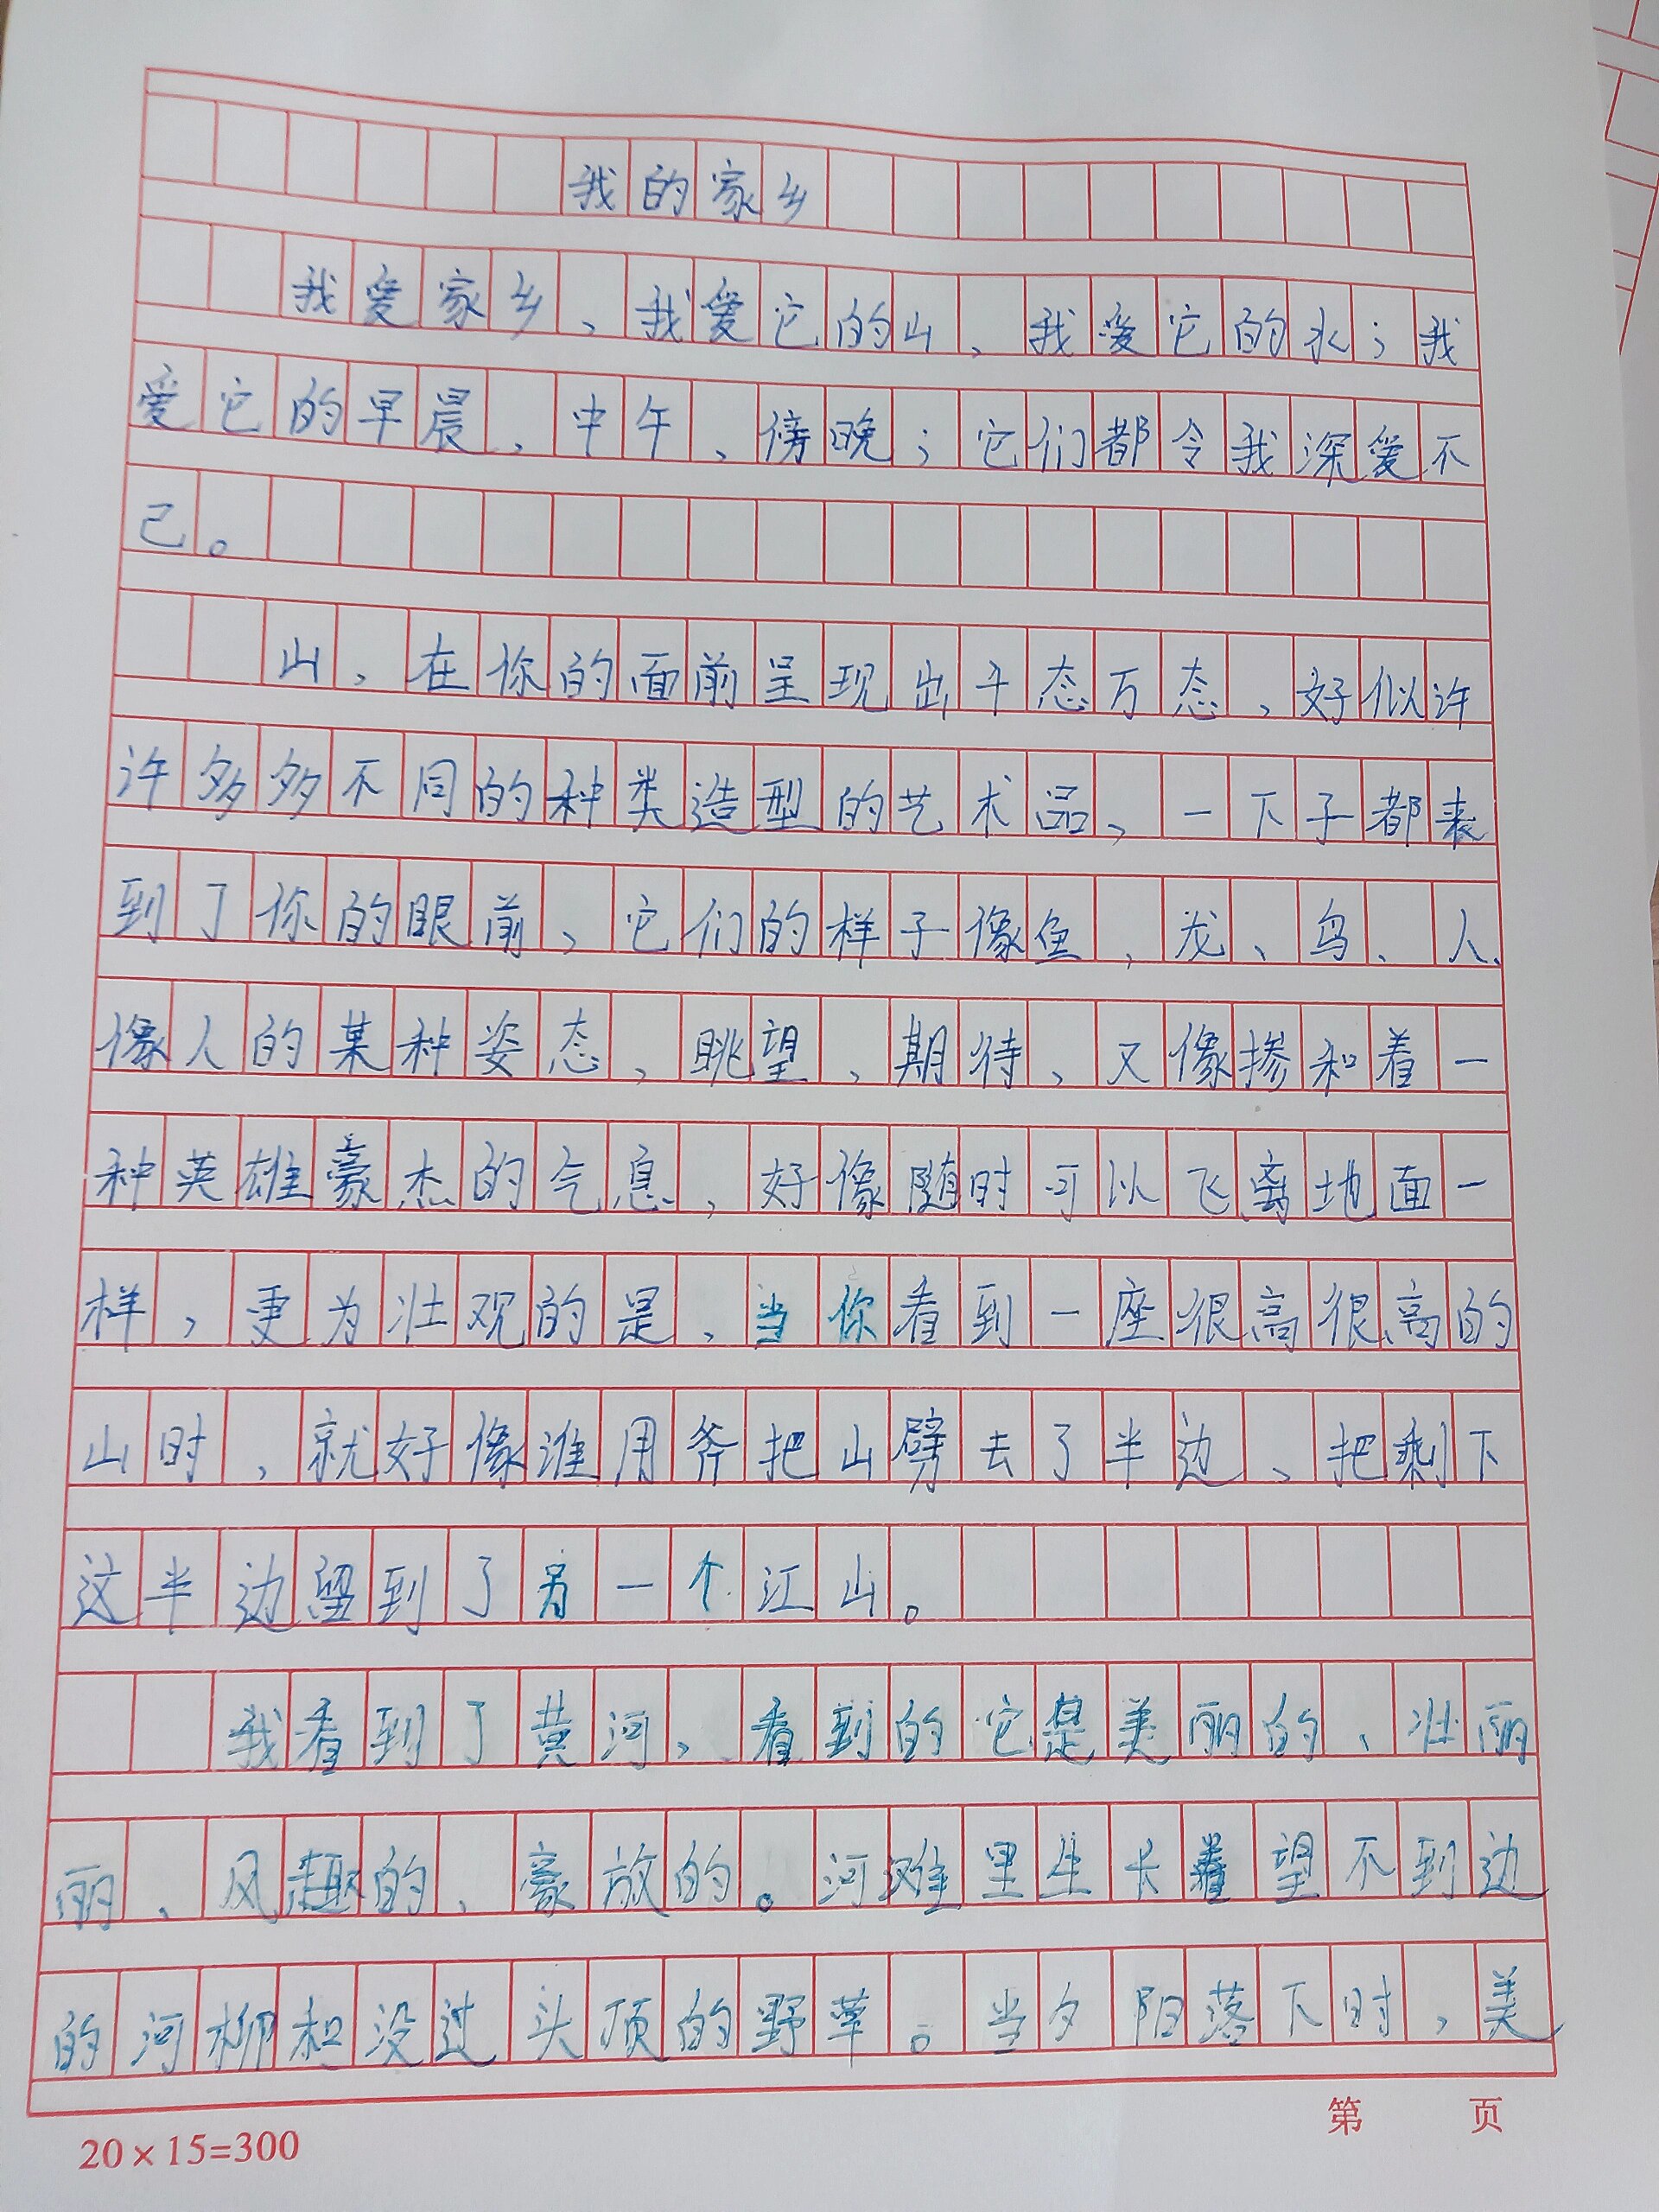 我的家乡
我爱家乡、我爱它的山、我爱它的水；我
爱它的早晨、中午、傍晚；它们都令我深爱不
己。
山，在你的面前呈现出千态万态、好似许
许多多不同的种类造型的艺术品、一下子都来
到了你的眼前、它们的样子像鱼、龙、鸟、人、
像人的某种姿态、眺望、期待、又像掺和着一
种英雄豪杰的气息，好像随时可以飞离地面一
样，更为壮观的是、当你看到一座很高很高的
山时，就好像谁用斧把山劈去了半边、把剩下
这半边留到了另一个江山。
我看到了黄河、看到的它是美丽的、壮丽
丽、风趣的、豪放的。河滩里生长着望不到边
的河柳和没过头顶的野草。当夕阳落下时，美
20×15=300
第 页